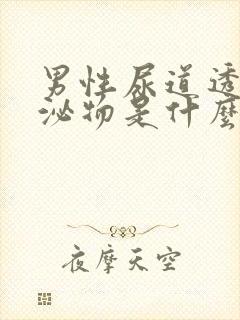 男性尿道透
泌物是什麼
夜摩天空